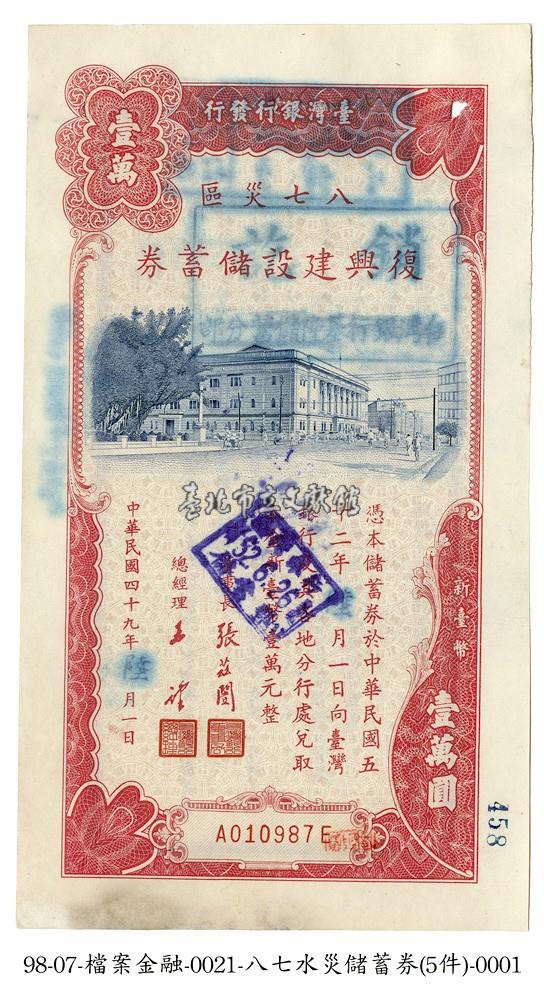 壹萬
臺灣銀行發行
八七災區
復興建設儲蓄券
銷
臺北市立文獻館
憑本儲蓄券於中華民國五
十二年陸月一日向臺灣
銀行
各地分行處兌取
新臺幣壹萬元整
董事長 張茲闓
總經理
中華民國四十九年陸月一日
52.6.26
新臺幣
壹萬圓
A010987E
458
98-07-檔案金融-0021-八七水災儲蓄券(5件)-0001